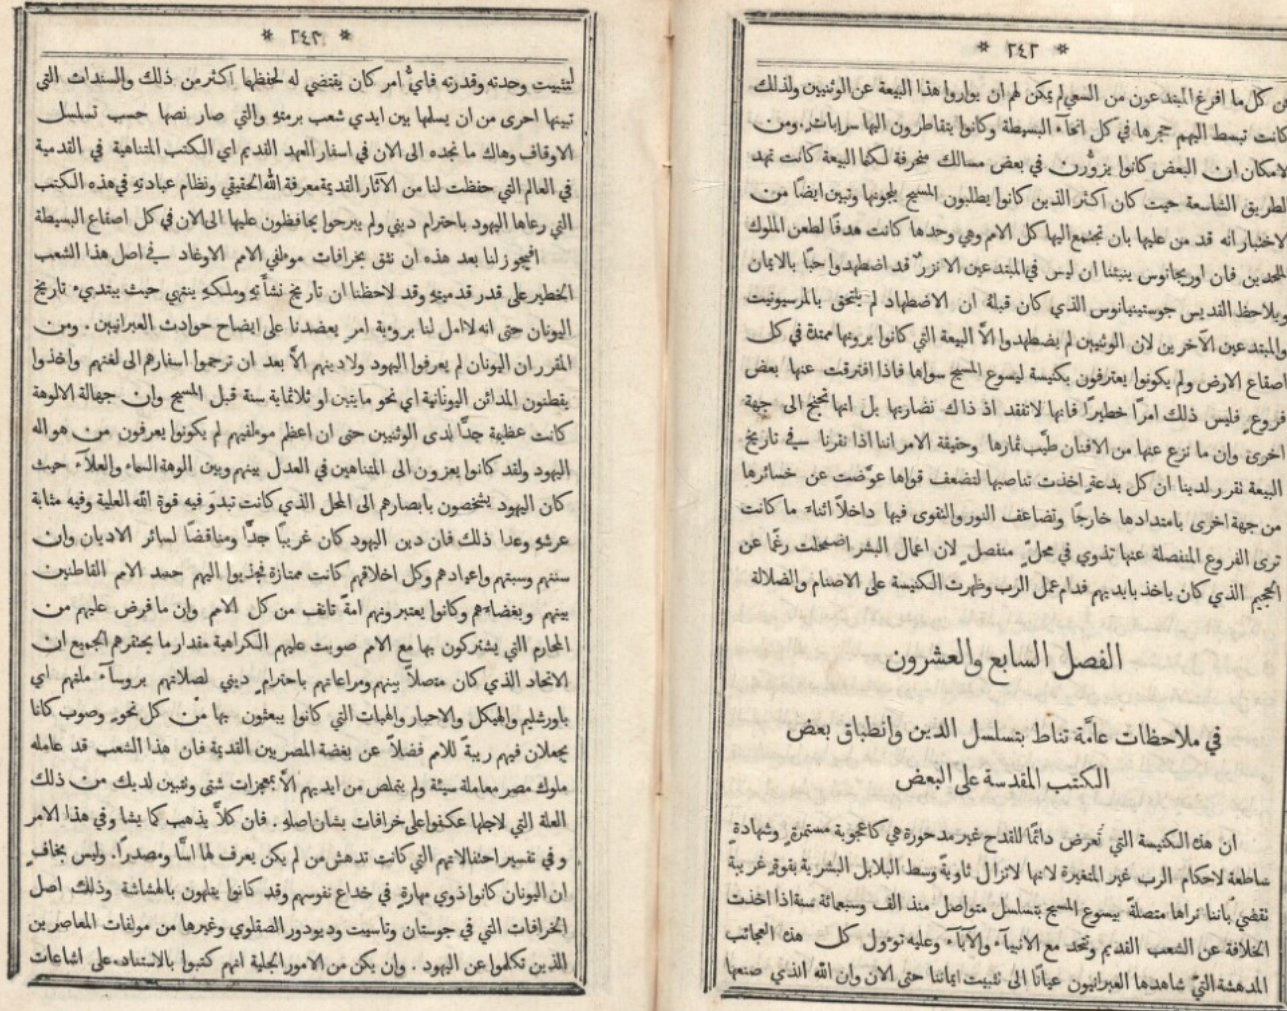 * ٢٤٢ *
كل ما افرغ المبتدعون من السعي لم يمكن لهم ان يواروا هذا البيعة عن الوثنيين ولذلك
كانت تبسط اليهم حجرها في كل انحآء البسيطة وكانوا يتقاطرون اليها سرابات. ومن
لامكان ان البعض كانوا يزوُّرون في بعض مسالك منحرفة لكنها البيعة كانت تمهد
لطريق الشاسعة حيث كان اكثر الذين كانوا يطلبون المسيح يلجونها وتبين ايضًا من
لاختبار انه قد من عليها بان تجتمع اليها كل الامم وهي وحدها كانت هدفًا لطعن الملوك
للحدين فان اوريجانوس ينبئنا ان ليس في المبتدعين الا نزرٌ قد اضطهدوا حبًا بالايمان
ويلاحظ القديس جوستينيانوس الذي كان قبلهُ ان الاضطهاد لم يلتحق بالمرسيونيت
والمبتدعين الآخرين لان الوثنيين لم يضطهدوا الَّا البيعة التي كانوا يرونها ممتدة في كل
اصقاع الارض ولم يكونوا يعترفون بكنيسة ليسوع المسيح سواها فاذا افترقت عنها بعض
فروع فليس ذلك امرًا خطيرًا فانها لا تفقد اذ ذاك نضارتها بل انها تجنح الى جهة
اخرى وان ما نزع عنها من الافنان طيّب ثمارها وحقيقة الامر اننا اذا نقرنا في تاريخ
البيعة تقرر لدينا ان كل بدعةٍ اخذت تناصبها لتضعف قواها عوَّضت عن خسائرها
من جهة اخرى بامتدادها خارجًا وتضاعف النور والتقوى فيها داخلًا اثناء ما كانت
ترى الفروع المنفصلة عنها تذوي في محلٍّ منفصلٍ لان اعمال البشر اضمحلت رغمًا عن
الجحيم الذي كان ياخذ بايديهم قدام عمل الرب وظهرت الكنيسة على الاصنام والضلالة
الفصل السابع والعشرون
في ملاحظات عامَّة تناط بتسلسل الدين وانطباق بعض
الكتب المقدسة على البعض
ان هذه الكنيسة التي تُعرض دائمًا للقدح غير مدحورة هي كاعجوبة مستمرةٍ وشهادةٍ
ساطعة لاحكام الرب غير المتغيرة لانها لا تزال ثاويةً وسط البلابل البشرية بقوةٍ غريبة
تقضي باننا نراها متصلةً بيسوع المسيح بتسلسل متواصل منذ الف وسبعمائة سنة اذا اخذت
الخلافة عن الشعب القديم وتتحد مع الانبيآء والآبآء وعليه تؤول كل هذه العجائب
المدهشة التي شاهدها العبرانيون عيانًا الى تثبيت ايماننا حتى الان وان الله الذي صنعها
* ٢٤٣ *
لتثبيت وحدته وقدرته فايُّ امر كان يقتضي له لحفظها اكثر من ذلك والسندات التي
تبينها احرى من ان يسلمها بين ايدي شعب برمتهِ والتي صار نصها حسب تسلسل
الاوقاف وهاك ما نجده الى الان في اسفار العهد القديم اي الكتب المتناهية في القدمية
في العالم التي حفظت لنا من الآثار القديمة معرفة الله الحقيقي ونظام عبادتهِ في هذه الكتب
التي رعاها اليهود باحترام ديني ولم يبرحوا يحافظون عليها الى الان في كل اصقاع البسيطة
افيجوز لنا بعد هذه ان نثق بخرافات مؤلفي الامم الاوغاد في اصل هذا الشعب
الخطير على قدر قدميتهِ وقد لاحظنا ان تاريخ نشأتهِ وملكهِ ينتهي حيث يبتدىء تاريخ
اليونان حتى انه لا امل لنا برؤية امرٍ يعضدنا على ايضاح حوادث العبرانيين. ومن
المقرر ان اليونان لم يعرفوا اليهود ولا دينهم الَّا بعد ان ترجموا اسفارهم الى لغتهم واخذوا
يقطنون المدائن اليونانية اي نحو مايتين او ثلاثماية سنة قبل المسيح وان جهالة الالوهة
كانت عظيمة جدًّا لدى الوثنيين حتى ان اعظم مؤلفيهم لم يكونوا يعرفون من هو اله
اليهود ولقد كانوا يعزون الى المتناهين في العدل بينهم وبين الوهة السماء والعلآء حيث
كان اليهود يشخصون بابصارهم الى المحل الذي كانت تبدو فيه قوة الله العلية وفيه مثابة
عرشهِ وعدا ذلك فان دين اليهود كان غريبًا جدًّا ومناقضًا لسائر الاديان وان
سننهم وسبتهم واعيادهم وكل اخلاقهم كانت ممتازة فجذبوا اليهم حسد الامم القاطنين
بينهم وبغضاءهم وكانوا يعتبرونهم امةً تانف من كل الامم وان ما فرض عليهم من
المحارم التي يشتركون بها مع الامم صوبت عليهم الكراهية مقدار ما يحتقرهم الجميع ان
الاتحاد الذي كان متصلًا بينهم ومراعاتهم باحترام ديني لصلاتهم بروسآء ملتهم اي
باورشليم والهيكل والاحبار والهبات التي كانوا يبعثون بها من كل نحوٍ وصوب كانا
يجعلان فيهم ريبةً للامم فضلًا عن بغضة المصريين القديمة فان هذا الشعب قد عامله
ملوك مصر معاملة سيئة ولم يتملص من ايديهم الَّا بمعجزات شتى وتتبين لديك من ذلك
العلة التي لاجلها عكفوا على خرافات بشان اصلهِ. فان كلًّا يذهب كما يشا وفي هذا الامر
وفي تفسير احتفالاتهم التي كانت تدهش من لم يكن يعرف لها اسًّا ومصدرًا. وليس بخافٍ
ان اليونان كانوا ذوي مهارةٍ في خداع نفوسهم وقد كانوا يلهون بالهشاشة وذلك اصل
الخرافات التي في جوستان وتاسيت وديودور الصقلوي وغيرها من مولفات المعاصرين
الذين تكلموا عن اليهود. وان يكن من الامور الجلية انهم كتبوا بالاستناد على اشاعات